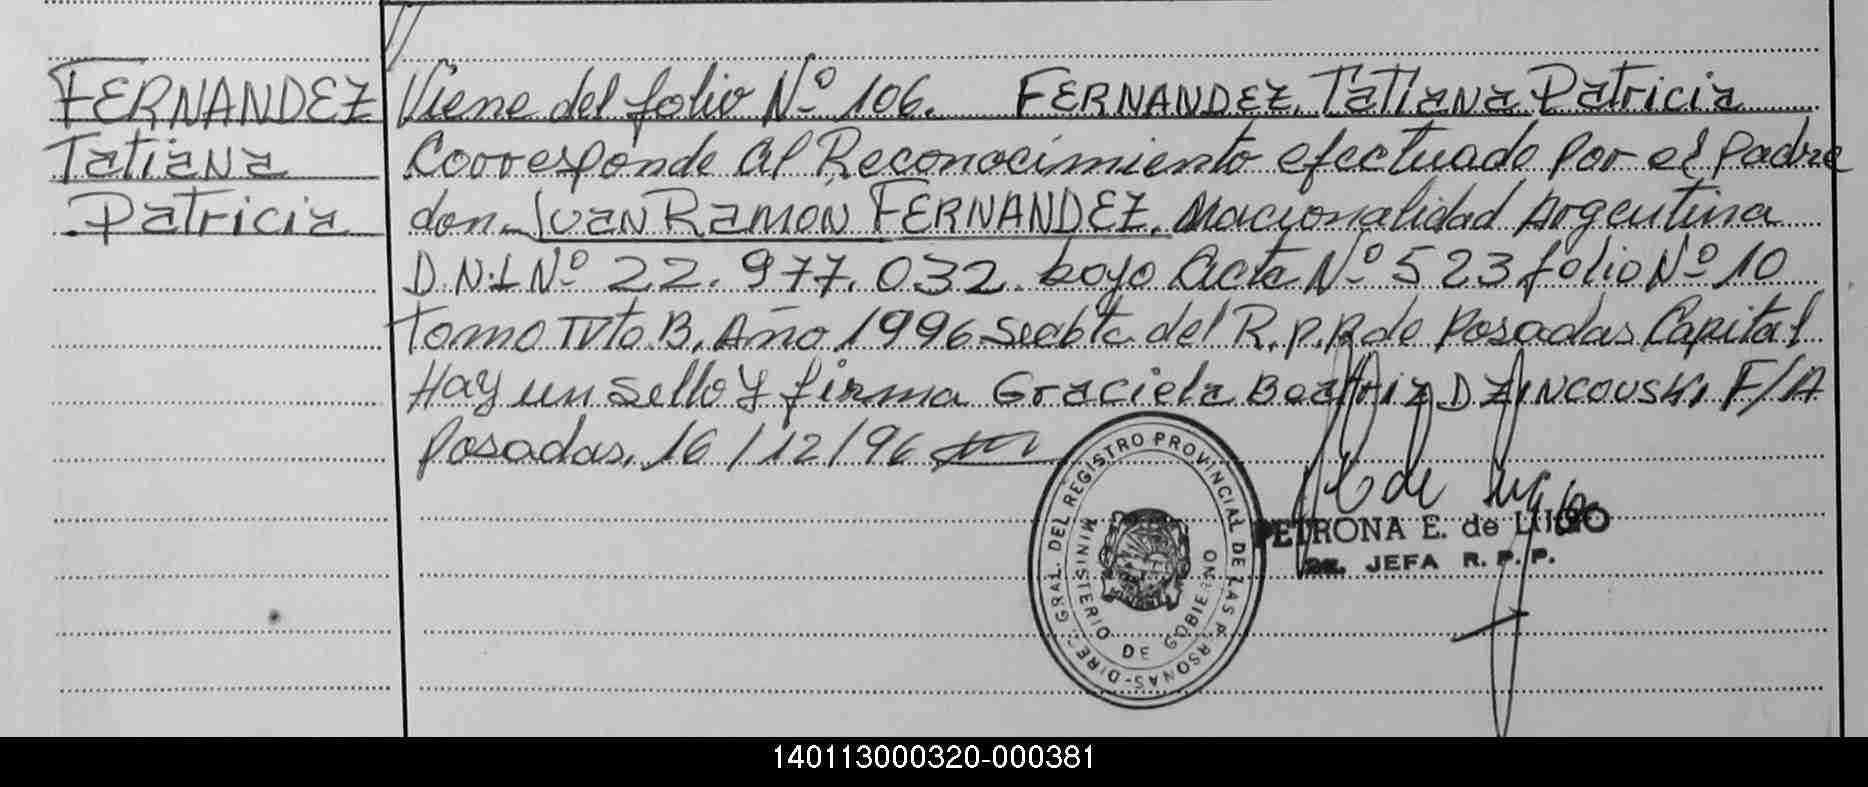 FERNANDEZ
Tatiana
Patricia
Viene del folio Nº 106. FERNANDEZ, Tatiana Patricia
Corresponde al Reconocimiento efectuado por el padre
don Juan Ramon FERNANDEZ, Nacionalidad Argentina
D.N.I Nº 22.977.032. bajo Acta Nº 523 folio Nº 10
Tomo TVto B. Año 1996 del R.P.P. de Posadas Capital
Hay un sello y firma Graciela Beatriz DZINCOUSKI F/A
Posadas, 16/12/96
DIREC. GRAL. DEL REGISTRO PROVINCIAL DE LAS PERSONAS
MINISTERIO DE GOBIERNO
PETRONA E. de LUGO
JEFA R. P. P.
140113000320-000381